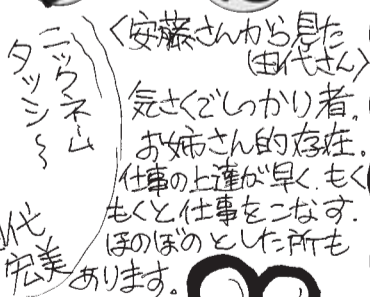 〈安藤さんから見た
(田代さん)〉
気さくでしっかり者。
お姉さん的存在。
仕事の上達が早く、もく
もくと仕事をこなす。
ほのぼのとした所も
あります。
ニックネーム
タッシ〜
代
宏美